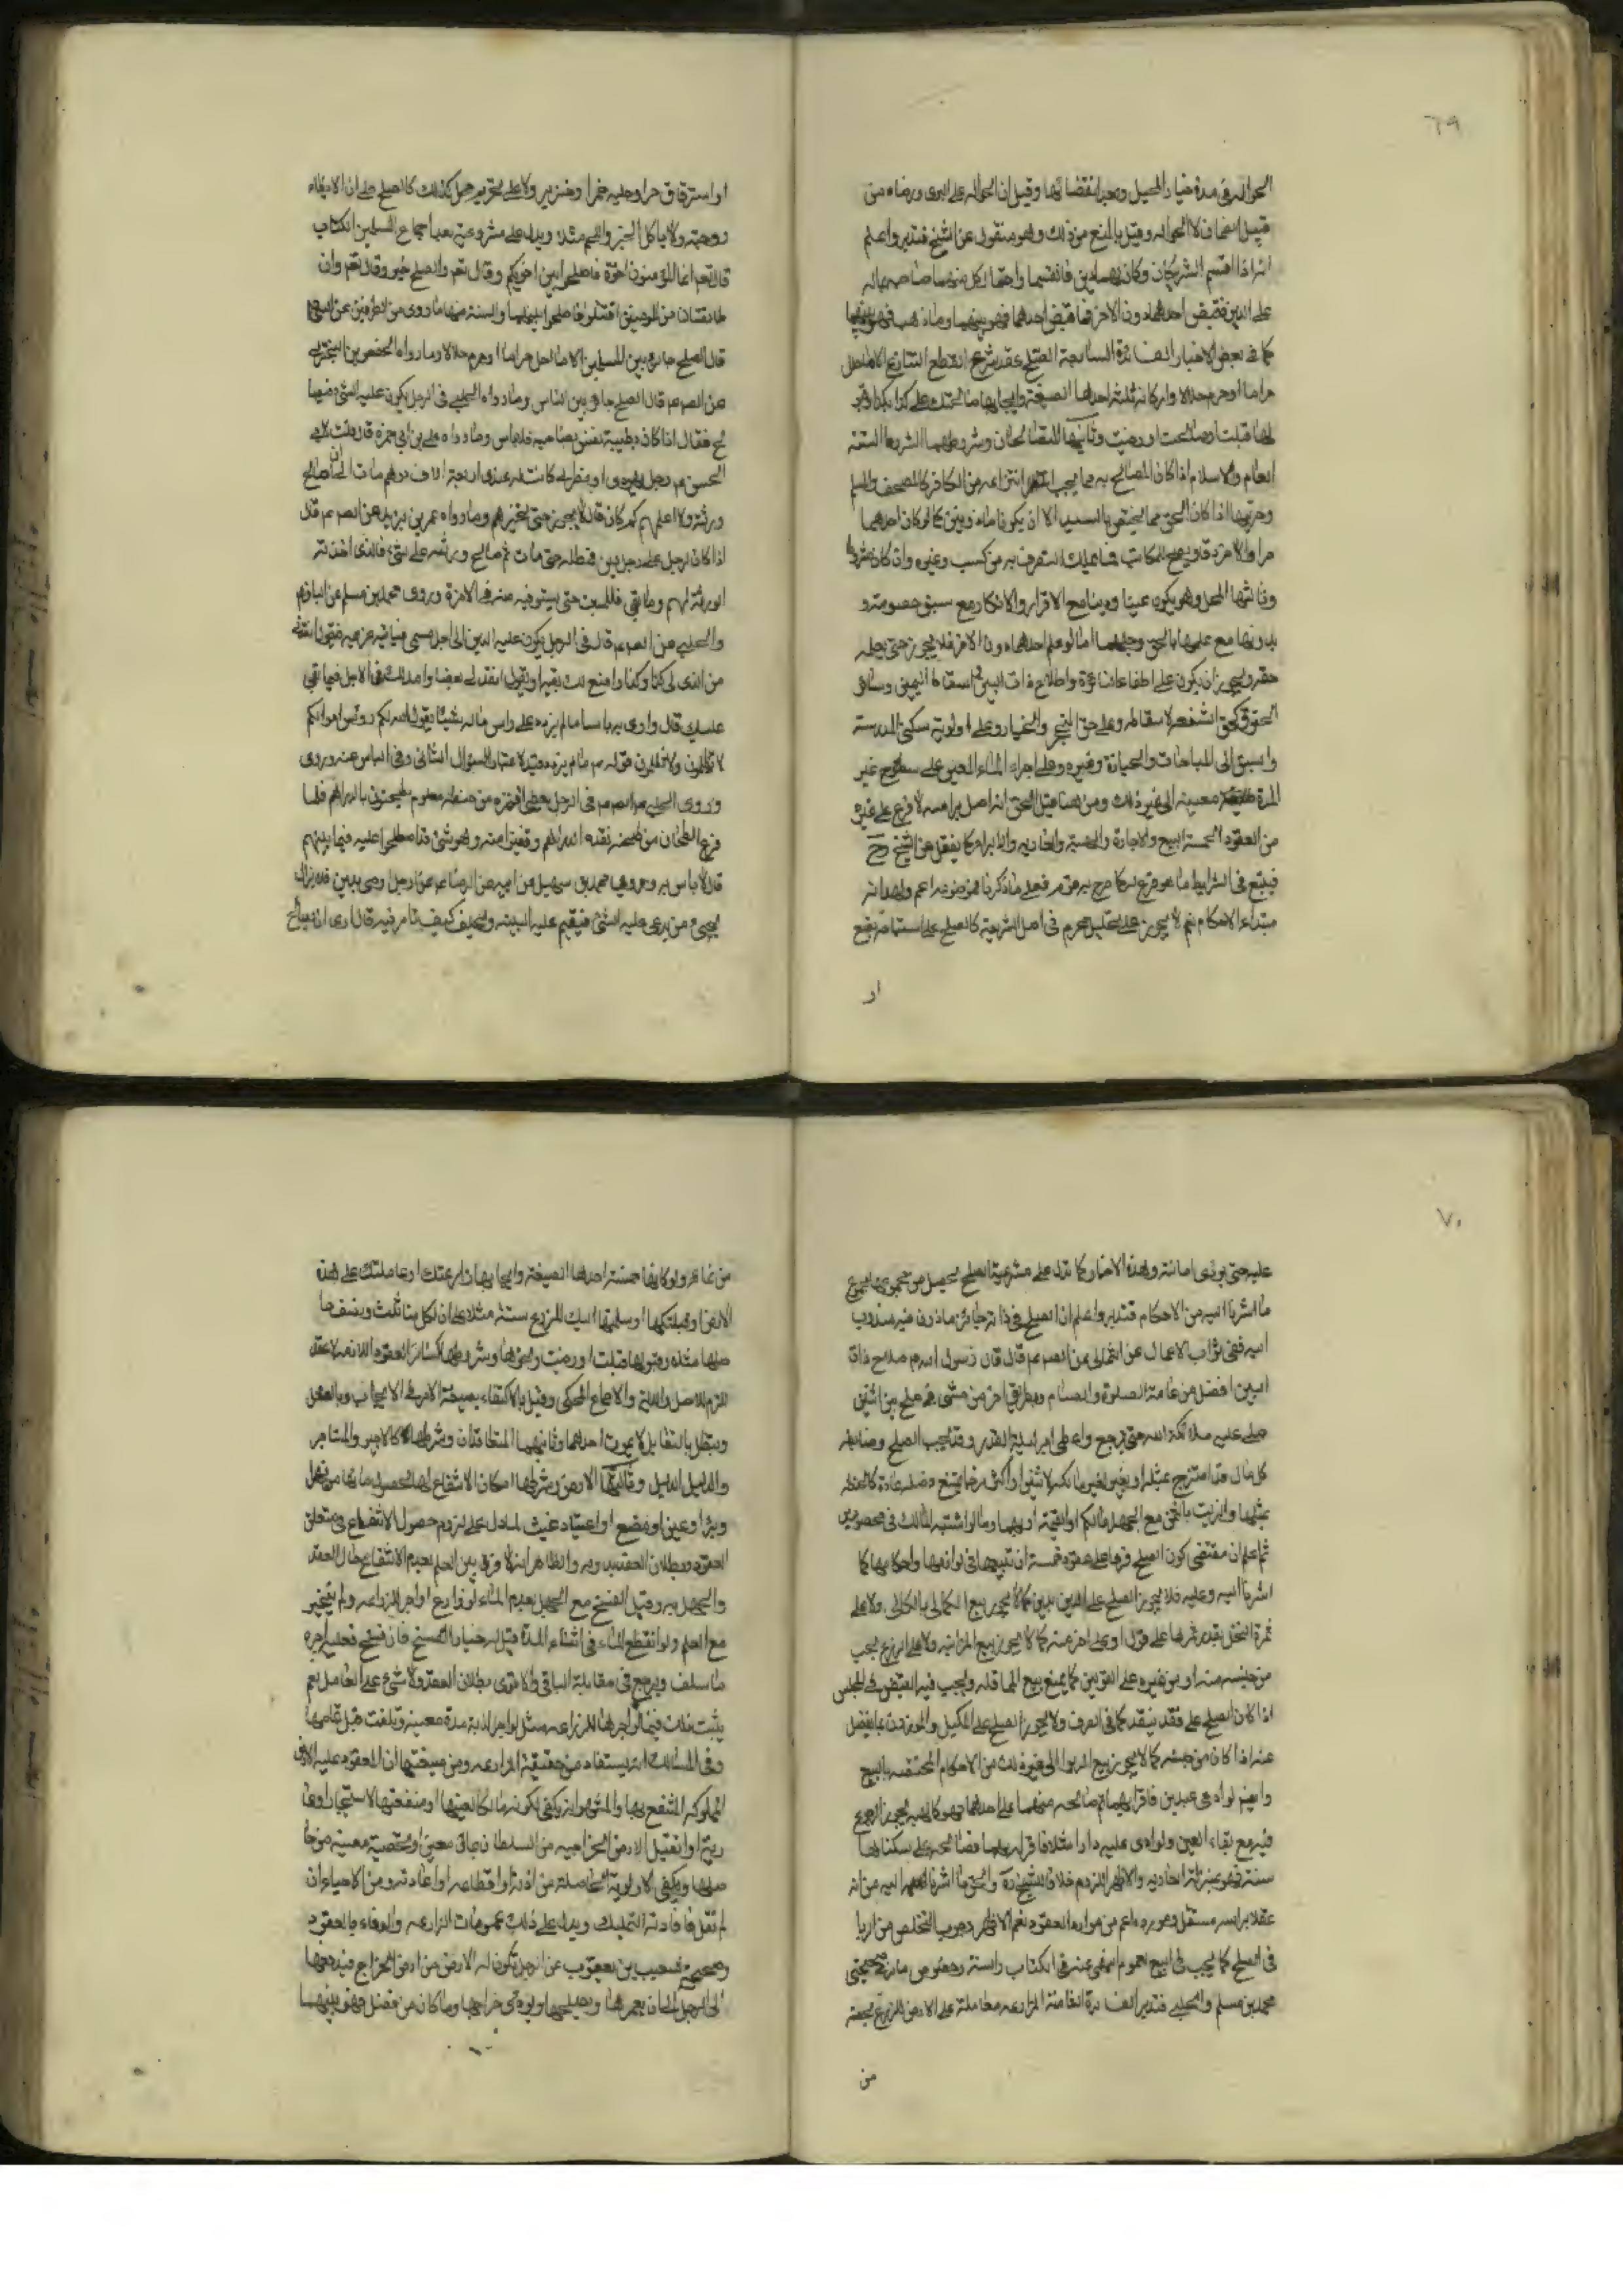 ٦٩
الحواله في مدة خيار المحيل وبعد انقضائها وقيل ان الحواله على البرى ورضاه من
قبيل الضمان لا الحواله وقيل بالمنع من ذلك وهو منقول عن الشيخ فتدبر واعلم
انه اذا اقتسم الشريكان وكان لهما دين فاقتسما واحتال كل منهما صاحبه بماله
على الدين فقبض احدهما دون الاخر فما قبض احدهما فهو بينهما وما ذهب فهو بينهما
كما في بعض الاخبار الفائدة السابعة الصلح عقد شرع لقطع التنازع الا ما احل
حراما او حرم حلالا واركانه ثلثة احدها الصيغة وايجابها صالحتك على كذا بكذا
قبلت او صالحت او رضيت وثانيها المتصالحان وشروطهما الشروط الستة
العام والاسلام اذا كان المصالح به مما يجب انتزاعه من الكافر كالمصحف والمسلم
وحريتهما اذا كان الحق مما يختص بالسيد الا ان يكونا ماذونين كما لو كان احدهما
حرا والاخر رقا ويصح للمكاتب فيما يملك التصرف به من كسب وغيره وان كان مشروطا
وثالثها المحل وهو يكون عينا ودينا مع الاقرار والانكار مع سبق خصومة و
بدونها مع علمهما بالحق وجهلهما اما لو علم احدهما دون الاخر فلا يجوز حتى يعلمه
حقه ويجوز ان يكون على اطفاء نائرة واصلاح ذات البين كاسقاط اليمين وسائر
الحقوق كحق الشفعة لاسقاطه وعلى حق التحجر والخيار وعلى اولوية سكنى المدرسة
والسبق الى المباحات والحيازة وغيره وعلى اجراء الماء المعين على سطح غير
المدة معينه الى غير ذلك ومن هنا قيل الحق انه اصل براسه لا فرع على غيره
من العقود الخمسة البيع والاجارة والهبة والعاريه والابراء كما نقل عن الشيخ رح
فيتبع في الشرايط ما هو فرع له كما صرح به فعلى ما ذكرنا موضوعه اعم ولهذا انه
مبتداء الاحكام نعم لا يجوز على تحليل محرم في اصل الشريعة كالصلح على استباحة بضع
او
او استرقاق حر او حليه خمرا وخنزير ولا على تحريم حل كذلك كالصلح على ان لا يطاء
زوجته ولا ياكل الخبز واللحم مثلا ويدل على مشروعيته بعد اجماع المسلمين الكتاب
قال تعم انما المؤمنون اخوة فاصلحوا بين اخويكم وقال تعم والصلح خير وقال تعم وان
طائفتان من المؤمنين اقتتلوا فاصلحوا بينهما والسنة منها ما روى من الطرفين عن النبي ص
قال الصلح جايز بين المسلمين الا ما احل حراما او حرم حلالا وما رواه الحفص بن البختري
عن الصم عم قال الصلح جايز بين الناس وما رواه الحلبي في الرجل يكون عليه الشئ فيصا
لح فقال اذا كان بطيبة نفس من صاحبه فلا باس وما رواه علي بن ابي حمزه قال قلت لابي
الحسن عم رجل يهودي او نصراني كانت له عندي اربعة الاف درهم مات الي ان اصالح
ورثته ولا اعلمهم كم كان قال لا يجوز حتى تخبرهم وما رواه عمر بن يزيد عن الصم عم قال
اذا كان لرجل على رجل دين فمطله حتى مات ثم صالح ورثته على شئ فالذي اخذته
الورثة لهم وما بقي فللميت حتى يستوفيه منه في الاخرة وروى محمد بن مسلم عن الباقر ع
والحلبي عن الصم عم قال في الرجل يكون عليه الدين الى اجل مسمى فياتيه غريمه فيقول انقدني
من الذي لي كذا وكذا واضع لك بقيته او يقول انقد لي بعضا وامد لك في الاجل فيما بقي
عليك قال لا ارى به باسا ما لم يزد على راس ماله شيئا يقول الله لكم رؤس اموالكم
لا تظلمون ولا تظلمون قوله عم ما لم يزد قيد لاعتبار السؤال الثاني وفي الباس عنه وروى
وروى الحلبي عن الصم عم في الرجل يعطي اقفزه من حنطة معلوم يطحنون بالدراهم فلما
فرغ الطحان من طحنه نقده الدراهم وقفيزا منه وهو شئ قد اصطلحوا عليه فيما بينهم
قال لا باس به وروى محمد بن سهيل عن ابيه عن الرضا عم عن رجل اوصى بدين فلا يزال
يجيئ من يدعي عليه الشئ فيقيم عليه البينه ويحلف كيف تامر فيه قال ارى ان يصالح
٧٠
عليه حتى يودى امانته وهذه الاخبار كما تدل على مشروعية الصلح يحصل من مجموعها جميع
ما اشرنا اليه من الاحكام فتدبر واعلم ان الصلح في ذاته جائز ماذون فيه مندوب
اليه ففي ثواب الاعمال عن الثمالي عن الصم عم قال قال رسول الله ص صلاح ذات
البين افضل من عامة الصلوة والصيام وبطريق اخر من مشى في صلح بين اثنين
صلى عليه ملائكة الله حتى يرجع واعطى اجر ليلة القدر وقد يجب الصلح وضابطه
كل مال قد امتزج بمثله او بغير لغير مالكه لاثنين او اكثر مزجا يمتنع فصله عادة كالحنطه
بمثلها والزيت بالسمن مع الجهل بمالكم او القيمة او بهما ومالو اشتبه المالك في محصورين
ثم اعلم ان مقتضى كون الصلح فرعا على عقود خمسة ان تتبعها في لوازمها واحكامها كما
اشرنا اليه وعليه فلا يجوز الصلح على الدين بدين كما لا يجوز بيع الكالي بالكالي ولا على
ثمرة النخل بقدر ثمرها على قول او على اخر عنه كما لا يجوز بيع المزابنه ولا على الزرع بحب
من جنسه منه او من غيره على القولين كما يمنع بيع المحاقله ويجب فيه القبض في المجلس
اذا كان الصلح على نقد بنقد كما في الصرف ولا يجوز الصلح على المكيل والموزون بما يفضل
عنه اذا كان من جنسه كما لا يجوز بيع الربوا الى غير ذلك من الاحكام المختصه بالبيع
وايضم لو ادعى عبدين فاقر بهما ثم صالحه منهما على احدهما فهو كالهبه يجوز الرجوع
فيه مع بقاء العين ولو ادعى عليه دارا مثلا فاقر له بها فصالحه على سكناها
سنة فهو بمنزلة العاريه والاظهر اللزوم خلافا للشيخ ره والحق ما اشرنا اليه من انه
عقد براسه مستقل وموضوعه اعم من موارد العقود نعم الاظهر وجوب التخلص من الربا
في الصلح كما يجب في البيع لعموم النهي عنه في الكتاب والسنة وخصوص ما في صحيحتي
محمد بن مسلم والحلبي فتدبر الفائدة الثامنة المزارعه معاملة على الارض للزرع بحصة
من
من نمائه ولو كانها خمسة احدها الصيغة وايجابها زارعتك او عاملتك على هذه
الارض او قبلتكها او سلمتها اليك للزرع سنة مثلا على ان لكل منا ثلث ونصف حا
صلها مثلا وقبولها قبلت او رضيت ونحوها وشروطها كسائر العقود اللازمه لانه عقد
لازم للاصل والادلة والاجماع المحكي وقيل بالاكتفاء بصيغة الامر في الايجاب وبالفعل
وتبطل بالتقايل لا بموت احدهما وثانيهما المتعاقدان وشرطهما كالاجير والمستاجر
والدليل الدليل وثالثها الارض وشرطها امكان الانتفاع لها لحصول ماء لها من نهر
وبئر او عين او مصنع او اعتياد غيث لما دل على لزوم حصول الانتفاع في متعلق
العقود وبطلان العقد بدونه والظاهر انه لا فرق بين العلم بعدم الانتفاع حال العقد
والجهل به وقيل الفسخ مع الجهل بعدم الماء لو زارع او اجر للزراعه ولم يتخير
مع العلم ولو انقطع الماء في اثناء المدة قيل له خيار الفسخ فان فسخ فعليه اجره
ما سلف ويرجع في مقابلة الباقي والاقوى بطلان العقد ولا شئ على العامل نعم
يثبت ذلك فيما لو اجرها للزراعه مثل لو اجر الدابة مدة معينه وتلفت قبل تمامها
وفي المسالك انه يستفاد من حقيقة المزارعه ومن صيغتها ان المعقود عليه الارض
المملوكه المنتفع بها والمشهور انه يكفي كونه مالكا لعينها او منفعتها لاستيجار او عا
رية او لتقبل الارض الخراجيه من السلطان بمال معين او بحصة معينه من حا
صلها ويكفي الاولوية الحاصلة من اذنه او اقطاعه او اعادته ومن الاحياء ان
لم نقل بافادته التمليك ويدل على ذلك عمومات المزارعه والوفاء بالعقود
وصحيح شعيب بن يعقوب عن الرجل تكون له الارض من ارض الخراج فيدفعها
الى الرجل على ان يعمرها ويصلحها ويودى خراجها وما كان من فضل فهو بينهما